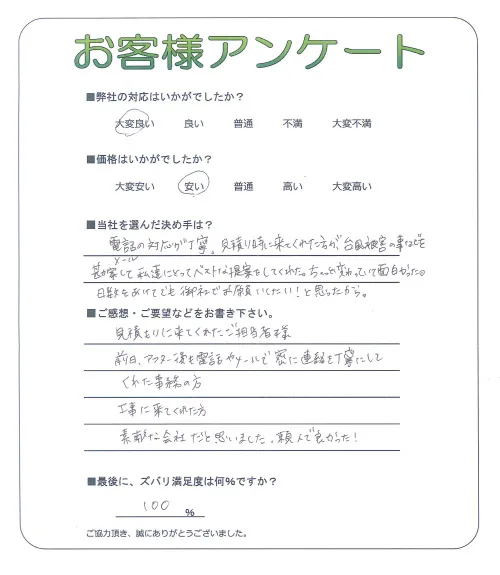 お客様アンケート
■弊社の対応はいかがでしたか？
大変良い 良い 普通 不満 大変不満
■価格はいかがでしたか？
大変安い 安い 普通 高い 大変高い
■当社を選んだ決め手は？
電話の対応が丁寧、見積り時に来てくれた方が、台風被害の事などを
メール
勘案して私達にとってベストな提案をしてくれた。ちょっと変わっていて面白かった。
日数をあけてでも御社でお願いしたい！と思ったから。
■ご感想・ご要望などをお書き下さい。
見積もりに来てくれたご担当者様
前日、アフター後も電話やメールで密に連絡を丁寧にして
くれた事務の方
工事に来てくれた方
素敵な会社だと思いました。頼んで良かった！
■最後に、ズバリ満足度は何%ですか？
100 %
ご協力頂き、誠にありがとうございました。